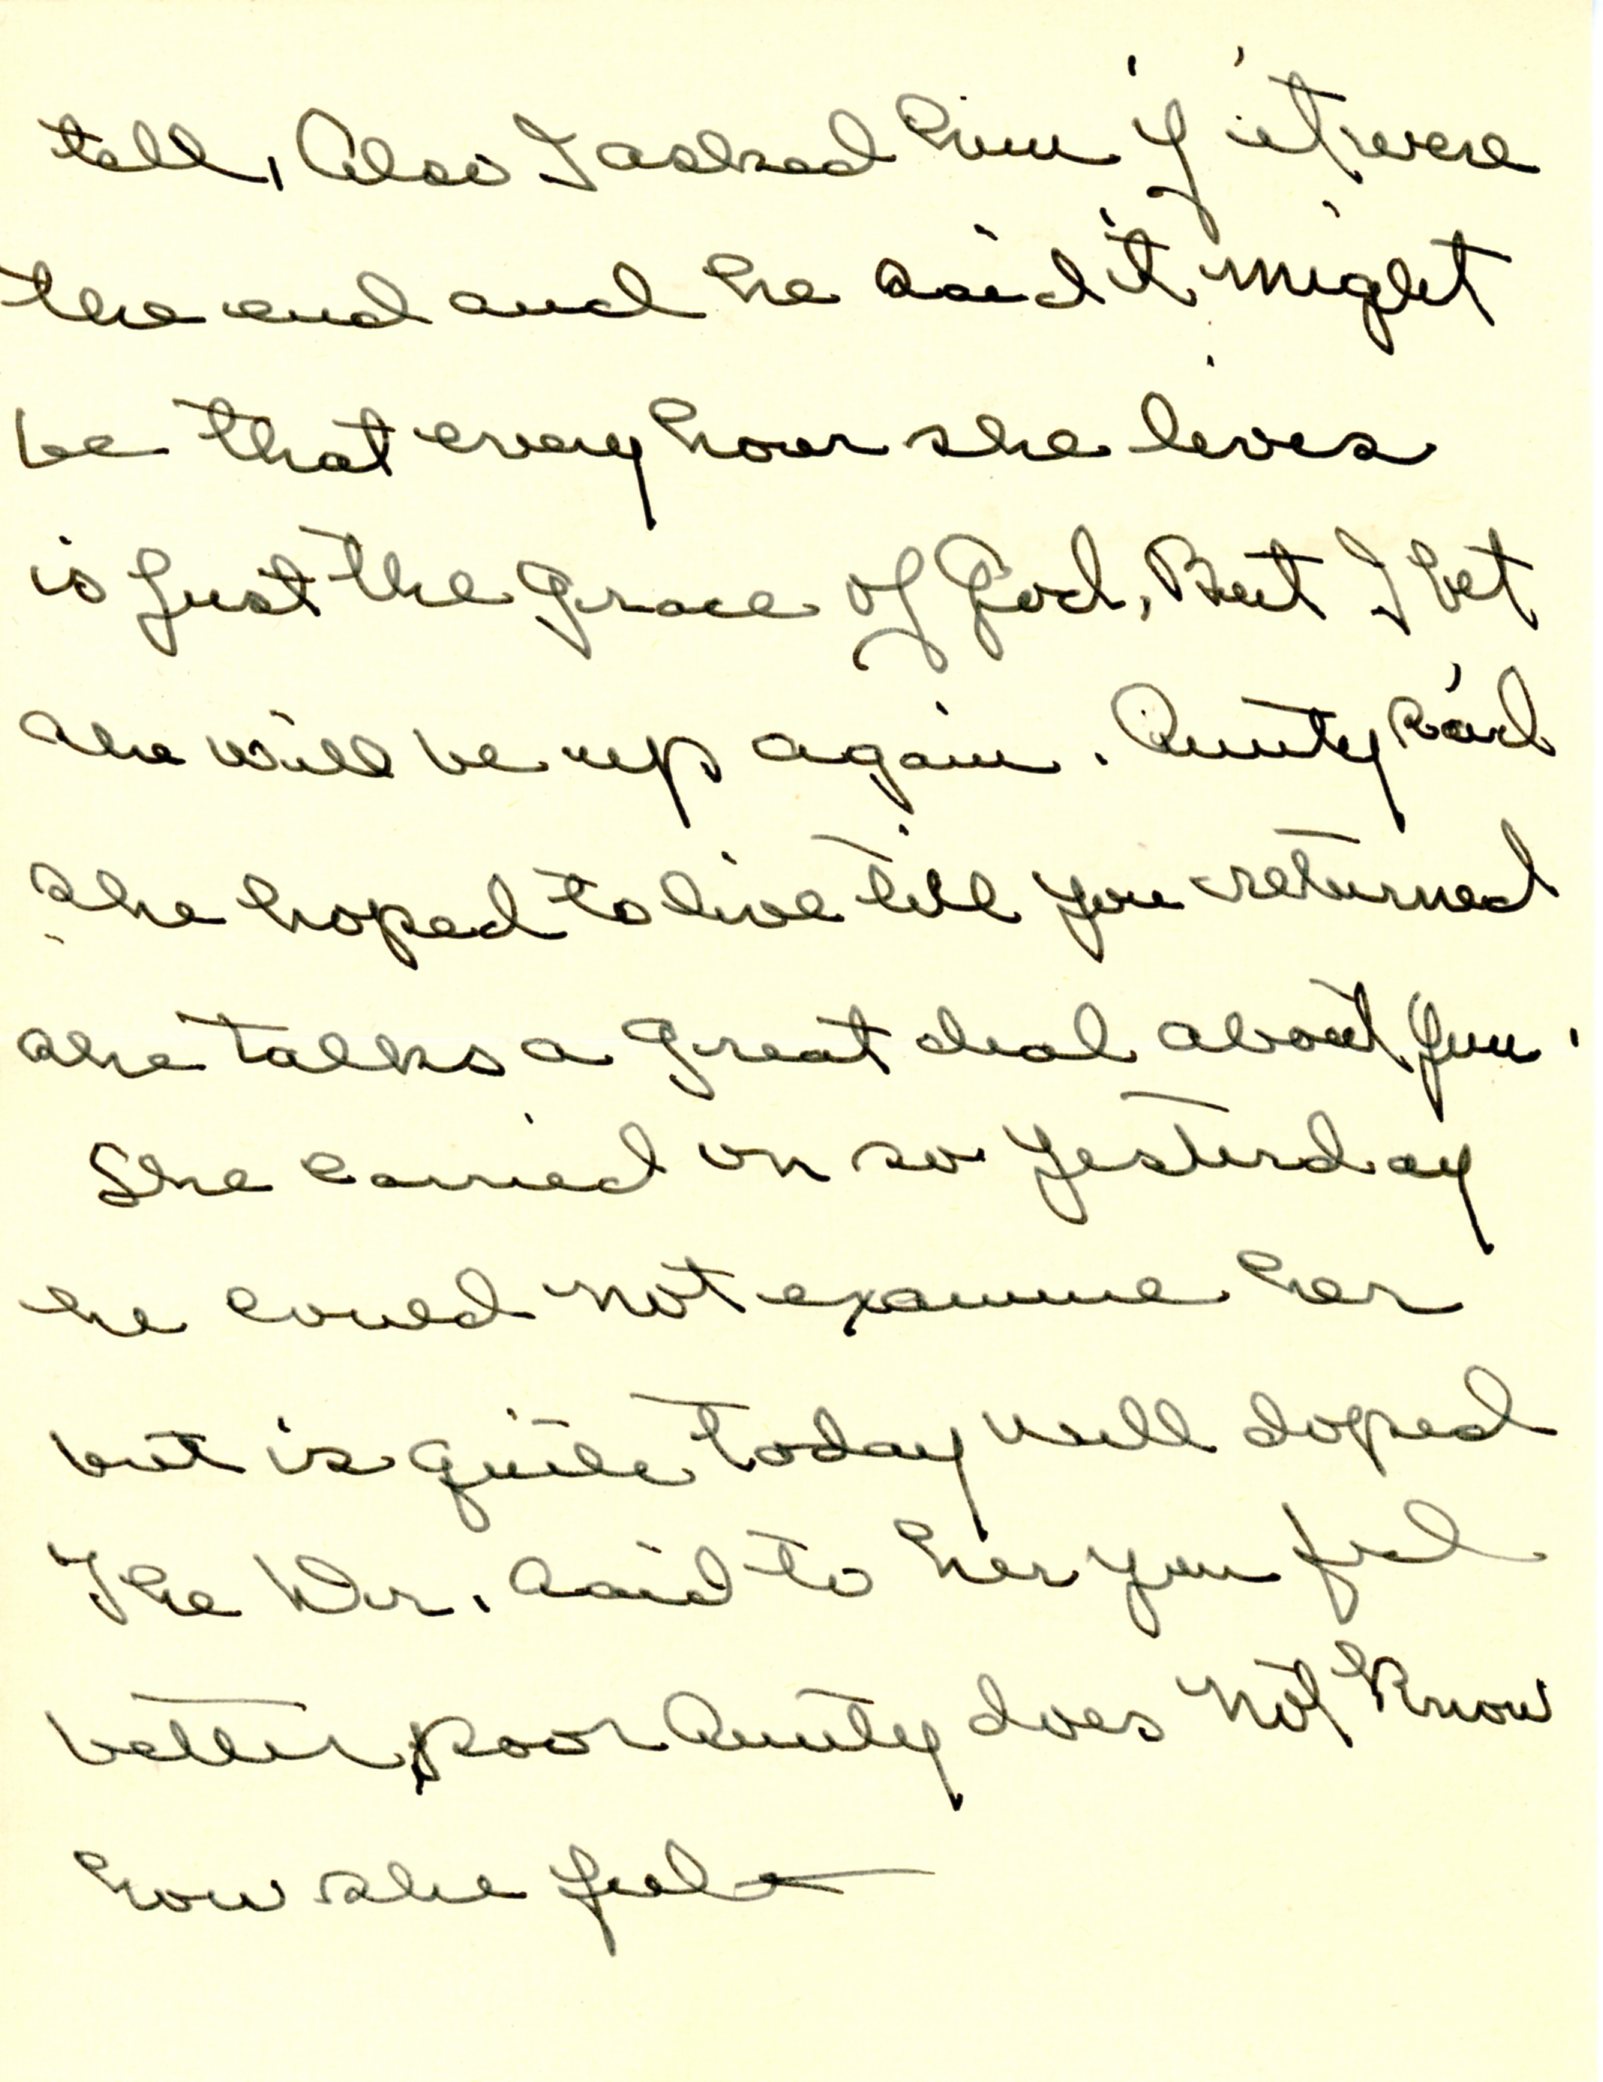 tell, Also I asked him if it were
the end and he said it might
be that every hour she lives
is just the grace of God, But I bet
she will be up again. Aunty said
she hoped to live till you returned
she talks a great deal about you.
She carried on so yesterday
he could not examine her
but is quite today well doped
The Dr. said to her you feel
better, poor Aunty does not know
how she feels